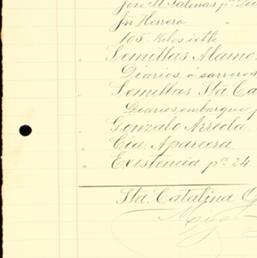 José M. Salinas pr
Jn Herrero
105 Kilos ixtle
Semillas Alamo
Diarios a
Semillas Sta Ca
Diarios embarque
Gonzalo Arreola
Cia Aparcera
Existencia pa 24
Sta. Catalina